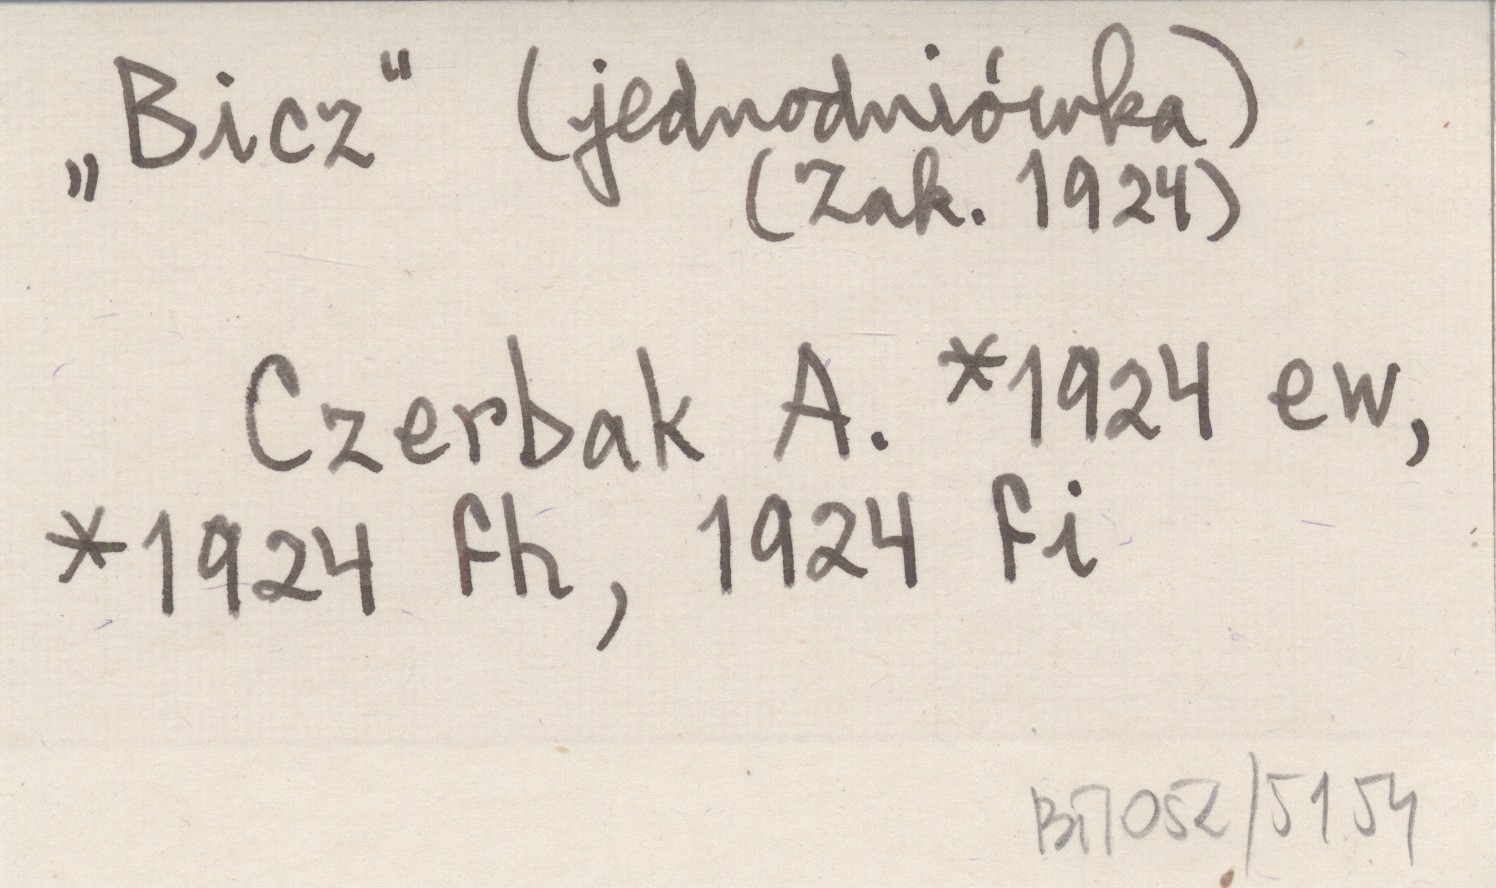 „Bicz“ (jednodniówka)
(Zak. 1924)
Czerbak A. *1924 ew,
*1924 fh, 1924 fi
/5154